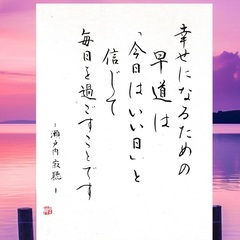 幸せになるための
早道は
「今日はいい日」と
信じて
毎日を過ごすことです
-瀬戸内寂聴-